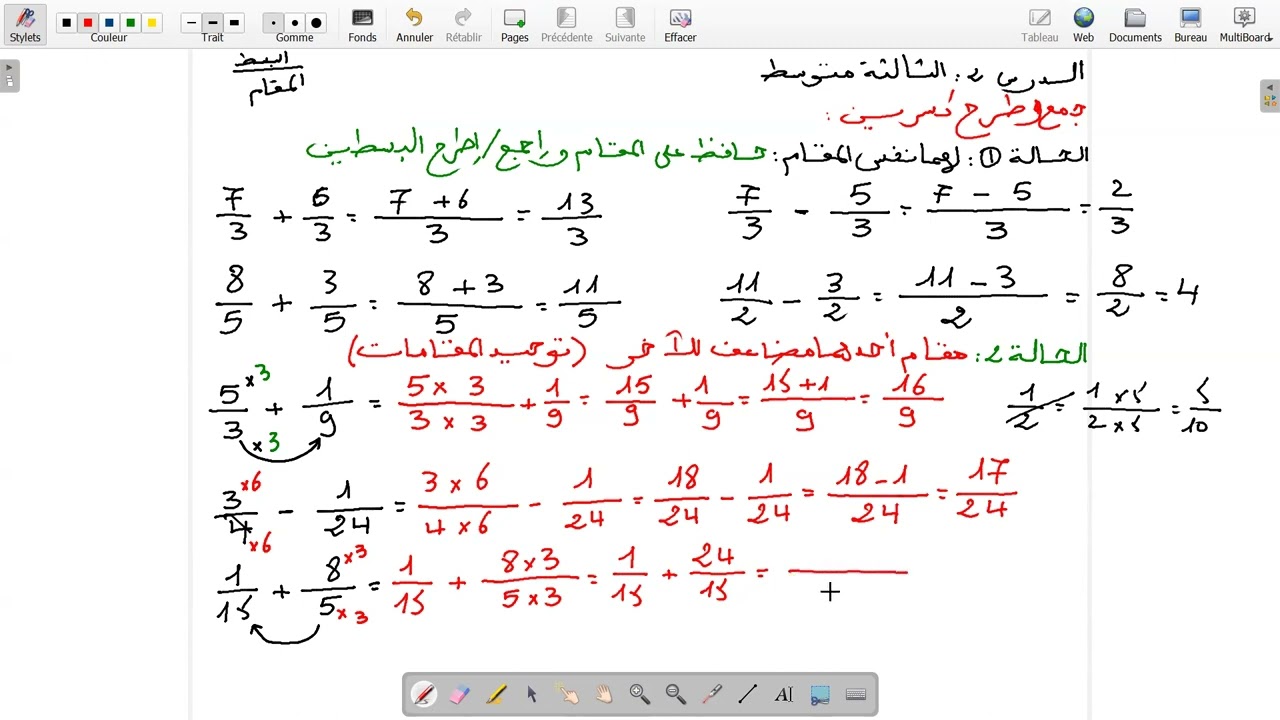 Stylets Couleur Trait Gomme Fonds Annuler Rétablir Pages Précédente Suivante Effacer Tableau Web Documents Bureau MultiBoard
البسط
المقام
الدرس 2: الثالثة متوسط
جمع وطرح كسرين:
الحالة ①: لهما نفس المقام: حافظ على المقام واجمع/اطرح البسطين
7/3 + 6/3 = (7 + 6)/3 = 13/3
7/3 - 5/3 = (7 - 5)/3 = 2/3
8/5 + 3/5 = (8 + 3)/5 = 11/5
11/2 - 3/2 = (11 - 3)/2 = 8/2 = 4
الحالة 2: مقام أحدهما مضاعف للآخر (توحيد المقامات)
5×3/3×3 + 1/9 = (5 × 3)/(3 × 3) + 1/9 = 15/9 + 1/9 = (15 + 1)/9 = 16/9
1/2 = (1 × 5)/(2 × 5) = 5/10
3×6/4×6 - 1/24 = (3 × 6)/(4 × 6) - 1/24 = 18/24 - 1/24 = (18 - 1)/24 = 17/24
1/15 + 8×3/5×3 = 1/15 + (8 × 3)/(5 × 3) = 1/15 + 24/15 =